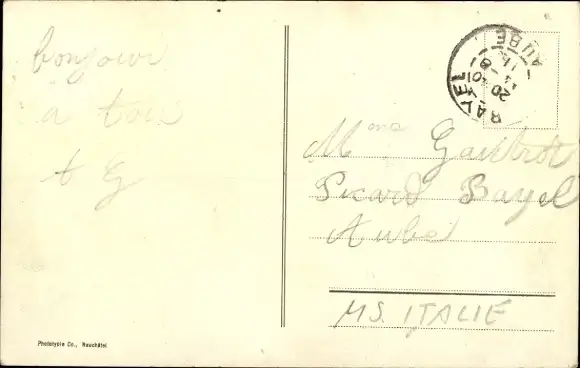 bonjour
a tous
t G
BAYEL
AUBE
Mme
Picard Bayel
Aube
MS. ITALIE
Phototypie Co., Neuchâtel